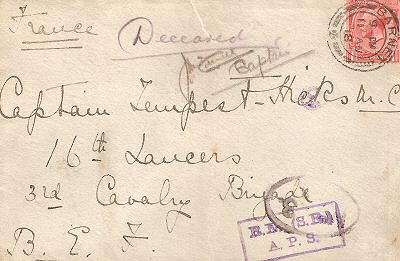 France
Deceased
BARNET
Captain
Captain Tempest-Hicks M.C
16th Lancers
3rd Cavalry Brigade
B. E. F.
R.E. (S.B.)
A.P.S.